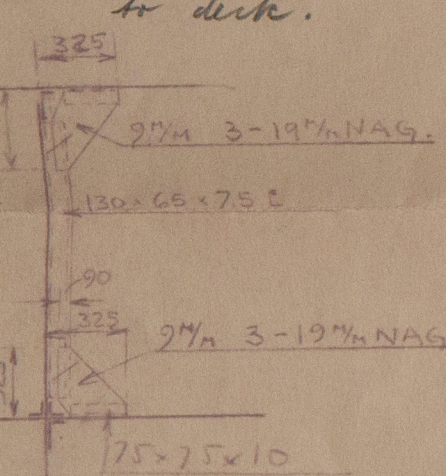 to deck.
325
9 M/M 3-19 M/M NAG.
130 × 65 × 7.5 [
90
325
9 M/M 3-19 M/M NAG
75 × 75 × 10